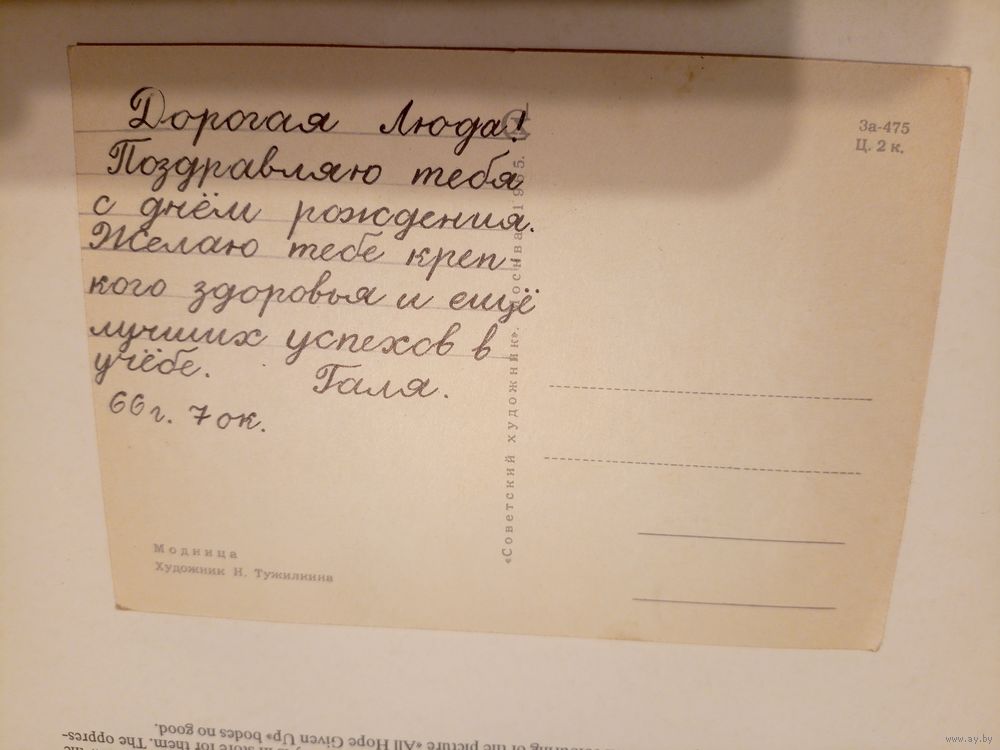 Дорогая Люда!
Поздравляю тебя
с днём рождения.
Желаю тебе креп-
кого здоровья и ещё
лучших успехов в
учёбе. Галя.
66 г. 7 ок.
Модница
Художник Н. Тужилкина
«Советский художник». Москва 1965.
За-475
Ц. 2 к.
of the picture «All Hope Given Up» bodes no good.
in store for them. The oppres-
www.ay.by